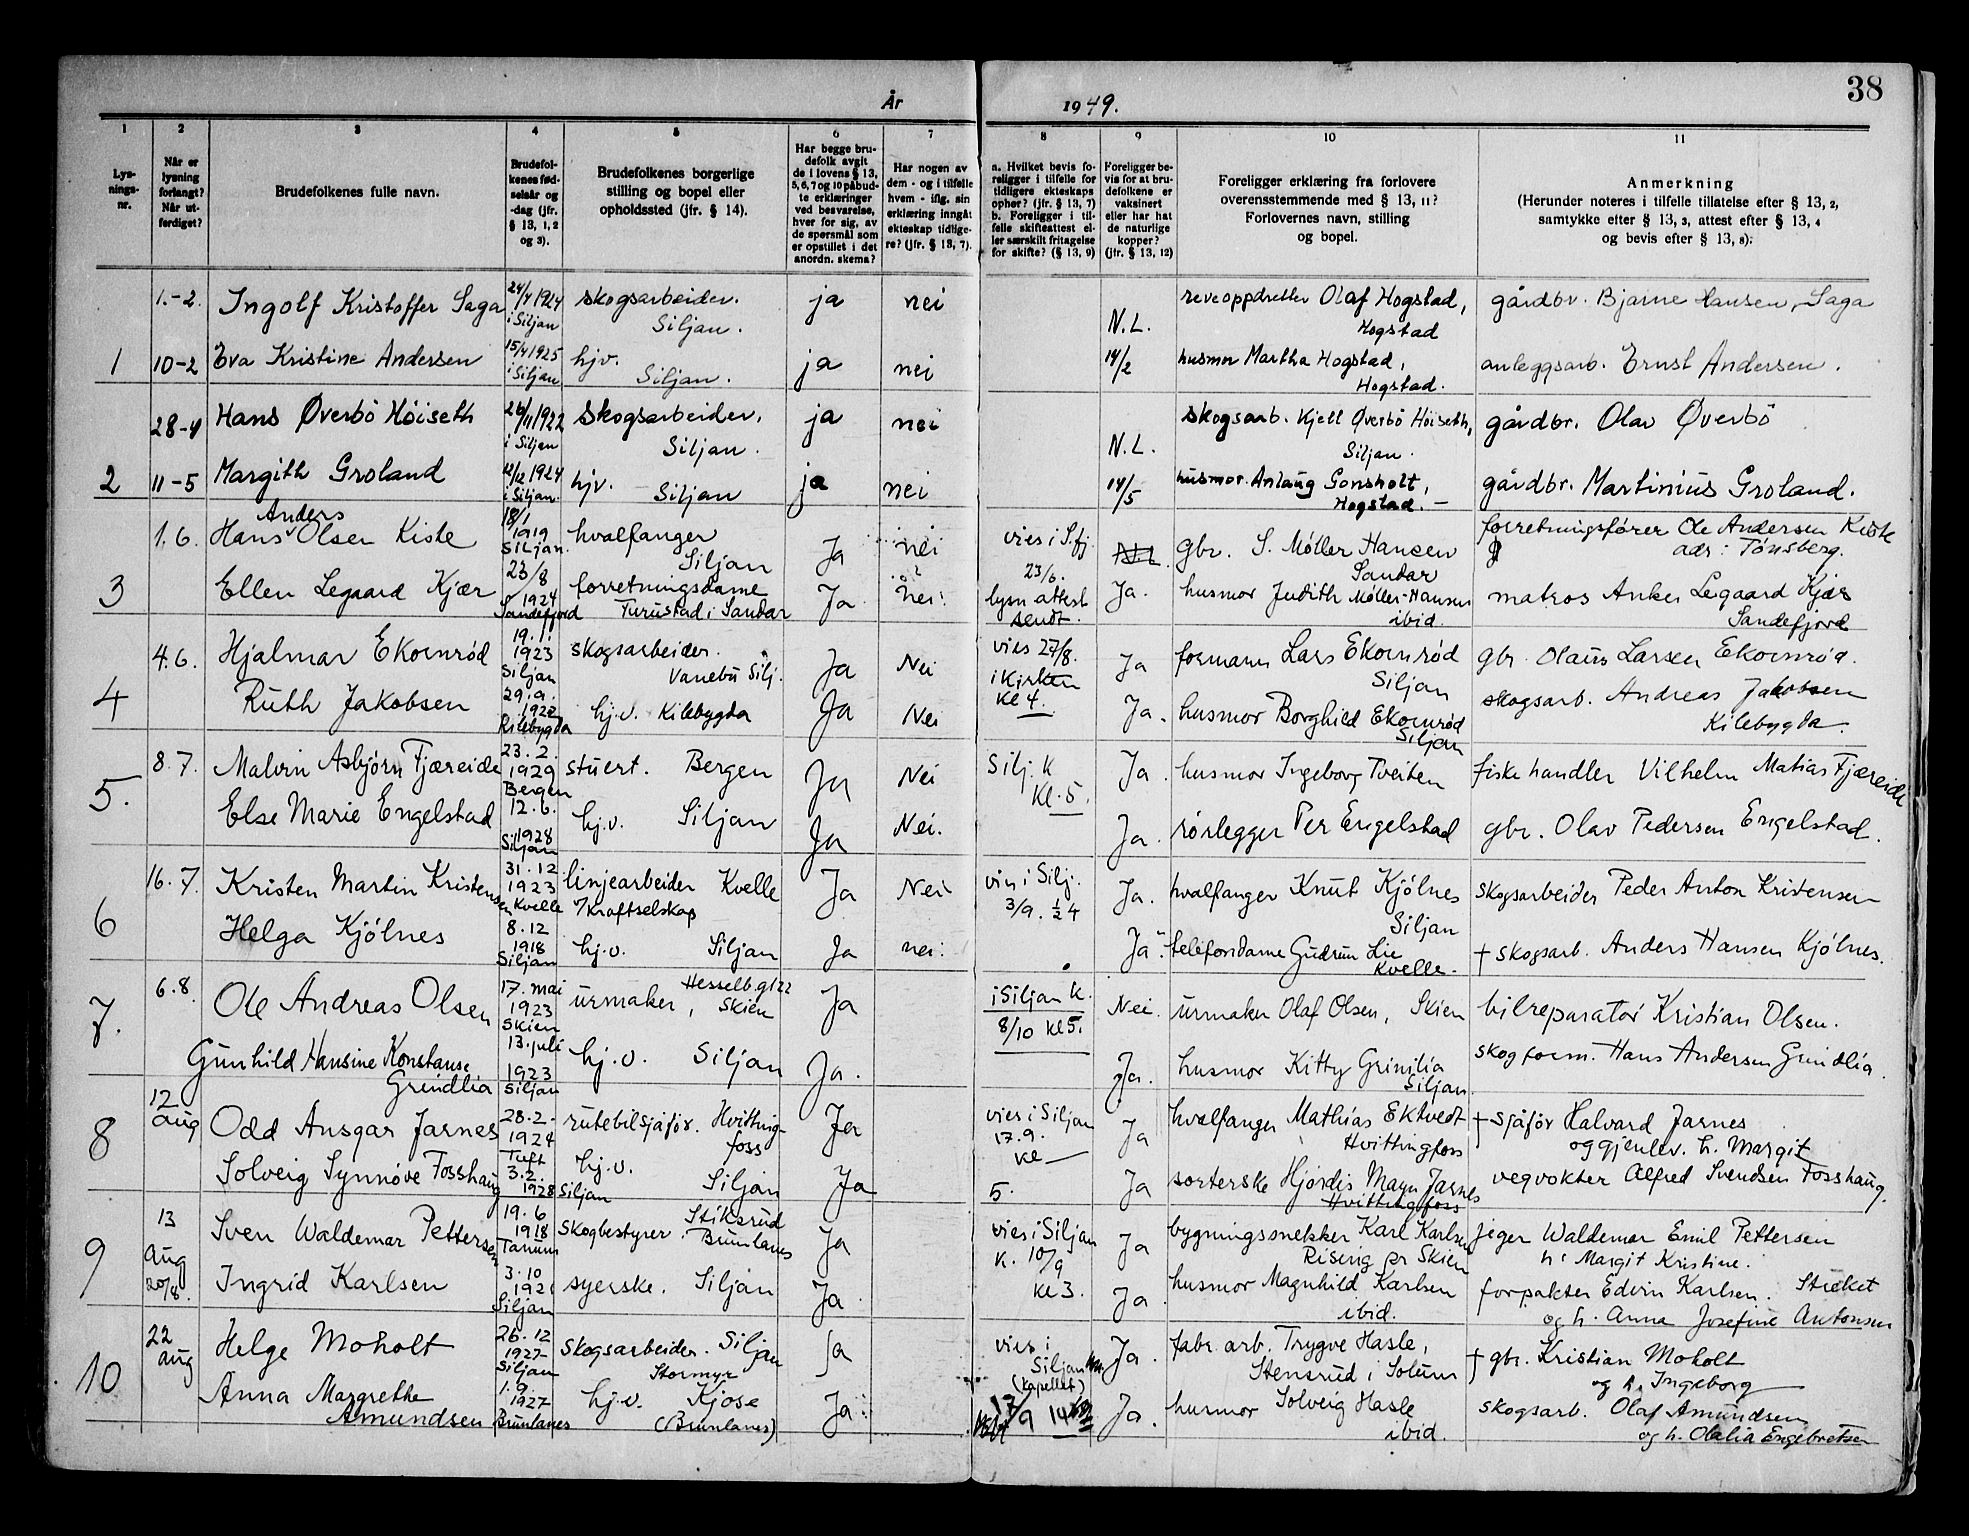 38
År 1949.
1 2 3 4 5 6 7 8 9 10 11
Lys-
nings-
nr.
Når er
lysning
forlangt?
Når ut-
ferdiget?
Brudefolkenes fulle navn.
Brudefol-
kenes fød-
selsår og
-dag (jfr.
§ 13, 1, 2
og 3).
Brudefolkenes borgerlige
stilling og bopel eller
opholdssted (jfr. § 14).
Har begge bru-
defolk avgit
de i lovens § 13,
5, 6, 7 og 10 påbud-
te erklæringer
ved besvarelse,
hver for sig, av
de spørsmål som
er opstillet i det
anordn. skema?
Har nogen av
dem - og i tilfelle
hvem - iflg. sin
erklæring inngåt
ekteskap tidlige-
re? (jfr. § 13, 7).
a. Hvilket bevis fo-
religger i tilfelle for
tidligere ekteskaps
ophør? (jfr. § 13, 7)
b. Foreligger i til-
felle skifteattest el-
ler særskilt fritagelse
for skifte? (§ 13, 9)
Foreligger be-
vis for at bru-
defolkene er
vaksinert
eller har hat
de naturlige
kopper?
(jfr. § 13, 12)
Foreligger erklæring fra forlovere
overensstemmende med § 13, 11?
Forlovernes navn, stilling
og bopel.
Anmerkning
(Herunder noteres i tilfelle tillatelse efter § 13, 2,
samtykke efter § 13, 3, attest efter § 13, 4
og bevis efter § 13, 8).
1.-2. Ingolf Kristoffer Saga 24/4 1924 i Siljan skogsarbeider. Siljan. ja nei N.L. reveoppdretter Olaf Hogstad, Hogstad gårdbr. Bjarne Hansen, Saga
1 10-2 Eva Kristine Andersen 15/4 1925 i Siljan hjv. Siljan. ja nei 14/2 husmor Martha Hogstad, Hogstad. anleggsarb. Ernst Andersen.
28-4 Hans Øverbö Höiseth 26/11 1922 i Siljan Skogsarbeider. Siljan. ja nei N.L. skogsarb. Kjell Øverbö Höiseth, Siljan. gårdbr. Olav Øverbö
2 11-5 Margith Groland 12/12 1924 i Siljan. hjv. Siljan ja nei 14/5 husmor Anlaug Gonsholt, Hogstad. gårdbr. Martinius Groland.
1.6. Hans Anders Olsen Kiste 18/1 1919 Siljan. hvalfanger Siljan Ja nei vies i S.fj 23/6. gbr. S. Møller Hansen Sandar forretningsfører Ole Andersen Kiste adr: Tönsberg.
3 Ellen Legaard Kjær 23/8 1924 Sandefjord forretningsdame Turustad i Sandar Ja nei. lysn. attest sendt. Ja. husmor Judith Møller-Hansen ibid. matros Anker Legaard Kjær Sandefjord
4.6. Hjalmar Ekornrød 19.1. 1923 Siljan skogsarbeider. Vanebu Silj. Ja Nei vies 27/8. i Kirken Kl 4. Ja formann Lars Ekornrød Siljan gbr. Olaus Larsen Ekornrød.
4 Ruth Jakobsen 29.9. 1922 Kilebygda hj.v. Kilebygda Ja Nei Ja. husmor Borghild Ekornrød Siljan skogsarb. Andreas Jakobsen Kilebygda.
8.7. Malvin Asbjørn Fjæreide 23.2. 1929 Bergen stuert. Bergen Ja Nei Silj. K Kl. 5. Ja. husmor Ingeborg Tveiten fiskehandler Vilhelm Matias Fjæreide
5. Else Marie Engelstad 12.6. 1928 Siljan hj.v. Siljan Ja Nei. Ja. rörlegger Per Engelstad gbr. Olav Pedersen Engelstad.
16.7. Kristen Martin Kristensen 31.12 1923 Kvelle linjearbeider Kvelle v/Kraftselskap Ja Nei vies i Silj. 3/9. ½4 Ja. hvalfanger Knut Kjölnes Siljan skogsarbeider Peder Anton Kristensen
6 Helga Kjölnes 8.12 1918 Siljan hj.v. Siljan Ja nei. Ja. telefondame Gudrun Lie Kvelle. † skogsarb. Anders Hansen Kjölnes.
6.8. Ole Andreas Olsen 17. mai 1923 Skien urmaker, Hesselb.gt 22 Skien Ja i Siljan K. 8/10 kl 5. Nei. urmaker Olaf Olsen, Skien bilreparatör Kristian Olsen.
7. Gunhild Hansine Konstanse Grindlia 13. juli 1923 Siljan hj.v. Siljan Ja. Ja. husmor Kitty Grinilia Siljan skogform. Hans Andersen Grindlia.
12 aug
8 Odd Ansgar Jarnes 28.2. 1924 Tuft rutebilsjåför. Hvitting-foss Ja vies i Siljan 17.9. Kl 5. Ja hvalfanger Mathias Ektvedt Hvittingfoss † sjåför Halvard Jarnes og gjenlev. h. Margit
Solveig Synnöve Fosshaug 3.2. 1928 Siljan hj.v. Siljan Ja Ja sorterske Hjördis Mayn Jarnes Hvittingfoss vegvokter Alfred Svendsen Fosshaug.
13 aug 20/8.
9 Sven Waldemar Pettersen 19.6 1918 Tanum Skogbestyrer. Stiksrud Brunlanes Ja vies i Siljan K. 10/9 Kl 3. Ja bygningssnekker Karl Karlsen Rising pr Skien jeger Waldemar Emil Pettersen h. Margit Kristine.
Ingrid Karlsen 3.10 1921 Siljan syerske. Siljan Ja Ja. husmor Magnhild Karlsen ibid. forpakter Edvin Karlsen. og h. Anna Josefine Antonsen
22 aug
10 Helge Moholt 26.12 1927 Siljan skogsarbeider. Siljan Stormyr Ja vies i Siljan (kapellet) 17/9 Ja. fabr. arb. Trygve Hasle, Stensrud i Solum † gbr. Kristian Moholt og h. Ingeborg
Anna Margrethe Amundsen 1.9. 1927 Brunlanes hj.v. Kjose (Brunlanes) Ja. Ja. husmor Solveig Hasle ibid. skogsarb. Olaf Amundsen og h. Olalia Engebretsen